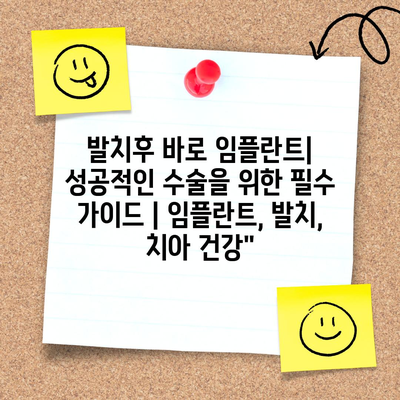 발치후 바로 임플란트|
성공적인 수술을 위한 필수
가이드 | 임플란트, 발치,
치아 건강"